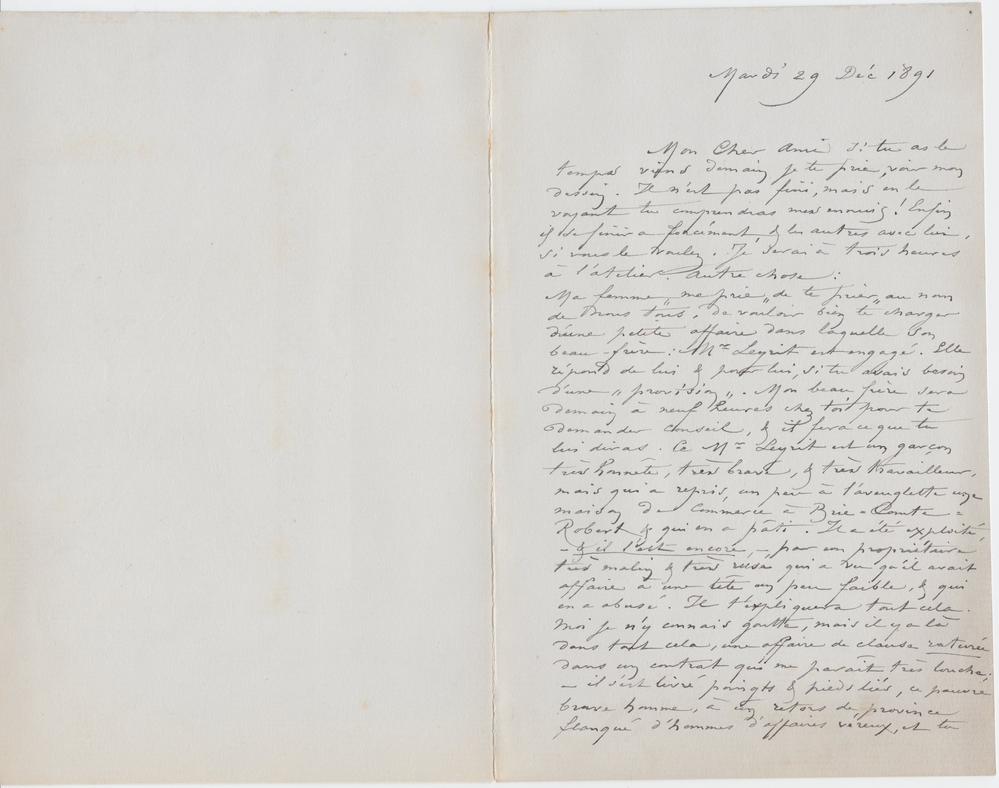 Mardi 29 Déc 1891
Mon Cher Ami si tu as le
temps viens demain je te prie, voir mon
dessin. Il n'est pas fini, mais en le
voyant tu comprendras mes ennuis ! Enfin
il se finira forcément & les autres avec lui,
si vous le voulez. Je serai à trois heures
à l'atelier. Autre chose :
Ma femme "me prie" de te prier, au nom
de nous tous, de vouloir bien te charger
d'une petite affaire dans laquelle son
beau-frère : Mr Leyrit est engagé. Elle
répond de lui & pour lui, si tu avais besoin
d'une "provision". Mon beau frère sera
demain à neuf heures chez toi pour te
demander conseil, & il fera ce que tu
lui diras. Ce Mr Leyrit est un garçon
très honnête, très brave, & très travailleur,
mais qui a repris, un peu à l'aveuglette une
maison de Commerce à Brie-Comte=
Robert & qui en a pâti. Il a été exploité,
- & il l'est encore, - par un propriétaire
très malin & très rusé qui a vu qu'il avait
affaire à une tête un peu faible, & qui
en a abusé. Il t'expliquera tout cela.
Moi je n'y connais goutte, mais il y a là
dans tout cela, une affaire de clause raturée
dans un contrat qui me paraît très louche ;
- il s'est livré poings & pieds liés, ce pauvre
brave homme, à un retors de province
flanqué d'hommes d'affaires véreux, et tu